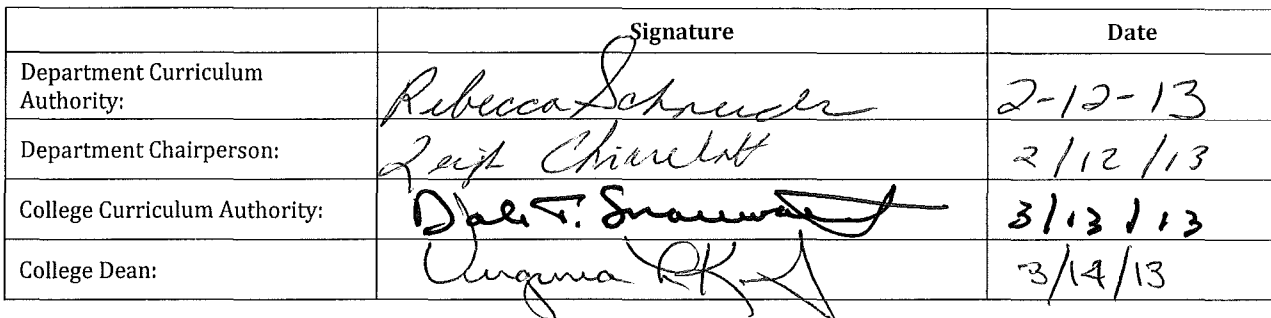 Signature Date
Department Curriculum
Authority: Rebecca Schneider 2-12-13
Department Chairperson: Leigh Chiarelott 2/12/13
College Curriculum Authority: Dale T. Snauwaert 3/13/13
College Dean: Virginia 3/14/13